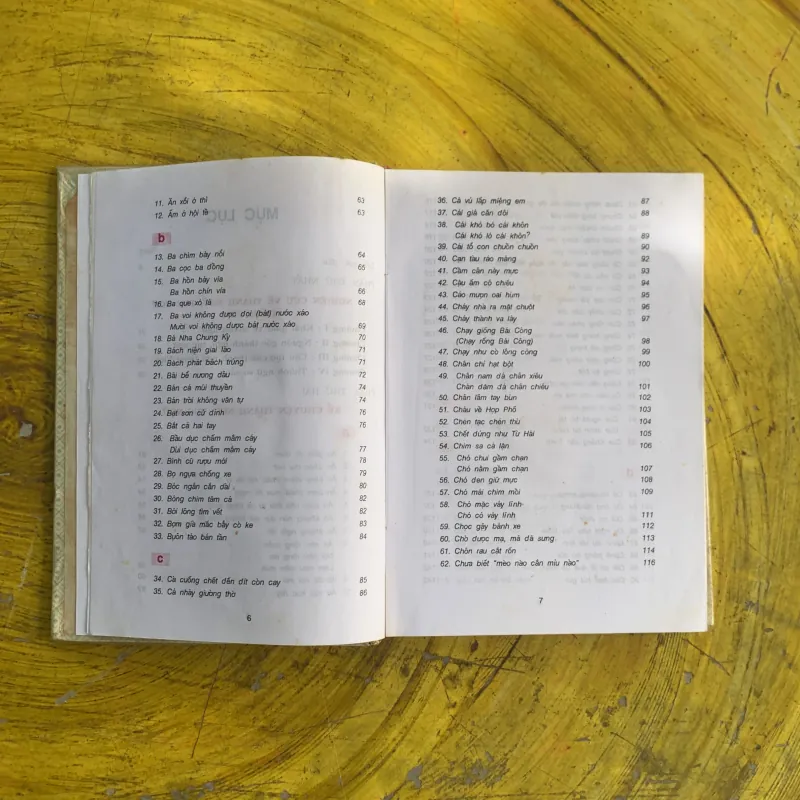 11. Ăn xổi ở thì 63
12. Ấm ớ hội tề 63
b
13. Ba chìm bảy nổi 64
14. Ba cọc ba đồng 65
15. Ba hồn bảy vía
Ba hồn chín vía 66
16. Ba que xỏ lá 68
17. Ba voi không được đọi (bát) nước xáo
Mười voi không được bát nước xáo 69
18. Bà Nha Chung Kỳ 70
19. Bách niên giai lão 71
20. Bách phát bách trúng 71
21. Bãi bể nương dâu 72
22. Bán cá mũi thuyền 73
23. Bán trời không văn tự 74
24. Bẹt sơn cữ đình 76
25. Bắt cá hai tay 76
26. Bầu dục chấm mắm cáy
Dùi đục chấm mắm cáy 77
27. Bình cũ rượu mới 78
28. Bọ ngựa chống xe 79
29. Bóc ngắn cắn dài 80
30. Bóng chim tăm cá 82
31. Bới lông tìm vết 82
32. Bợm già mắc bẫy cò ke 83
33. Buôn tảo bán tần 84
c
34. Cà cuống chết đến đít còn cay 85
35. Cá nhảy giường thờ 86
6
36. Cả vú lấp miệng em 87
37. Cải giá cân đôi 88
38. Cái khó bó cái khôn
Cái khó ló cái khôn? 89
39. Cãi tổ con chuồn chuồn 90
40. Cạn tàu ráo máng 91
41. Cầm cân nảy mực 92
42. Cậu ấm cô chiêu 94
43. Cáo mượn oai hùm 95
44. Cháy nhà ra mặt chuột 96
45. Cháy thành vạ lây 97
46. Chạy giống Bái Công
(Chạy rống Bái Công) 98
47. Chạy như cờ lông công 99
48. Chắn chỉ hạt bột 100
49. Chân nam đá chân xiêu
Chân đăm đá chân chiêu 101
50. Chân lấm tay bùn 102
51. Châu về Hợp Phố 103
52. Chén tạc chén thù 104
53. Chết đứng như Từ Hải 105
54. Chim sa cá lặn 106
55. Chó chui gầm chạn
Chó nằm gầm chạn 107
56. Chó đen giữ mực 108
57. Chó mái chim mồi 109
58. Chó mặc váy lĩnh
Chó có váy lĩnh 111
59. Chọc gậy bánh xe 112
60. Chờ được mạ, má đã sưng 113
61. Chôn rau cắt rốn 114
62. Chưa biết "mèo nào cắn mỉu nào" 116
7